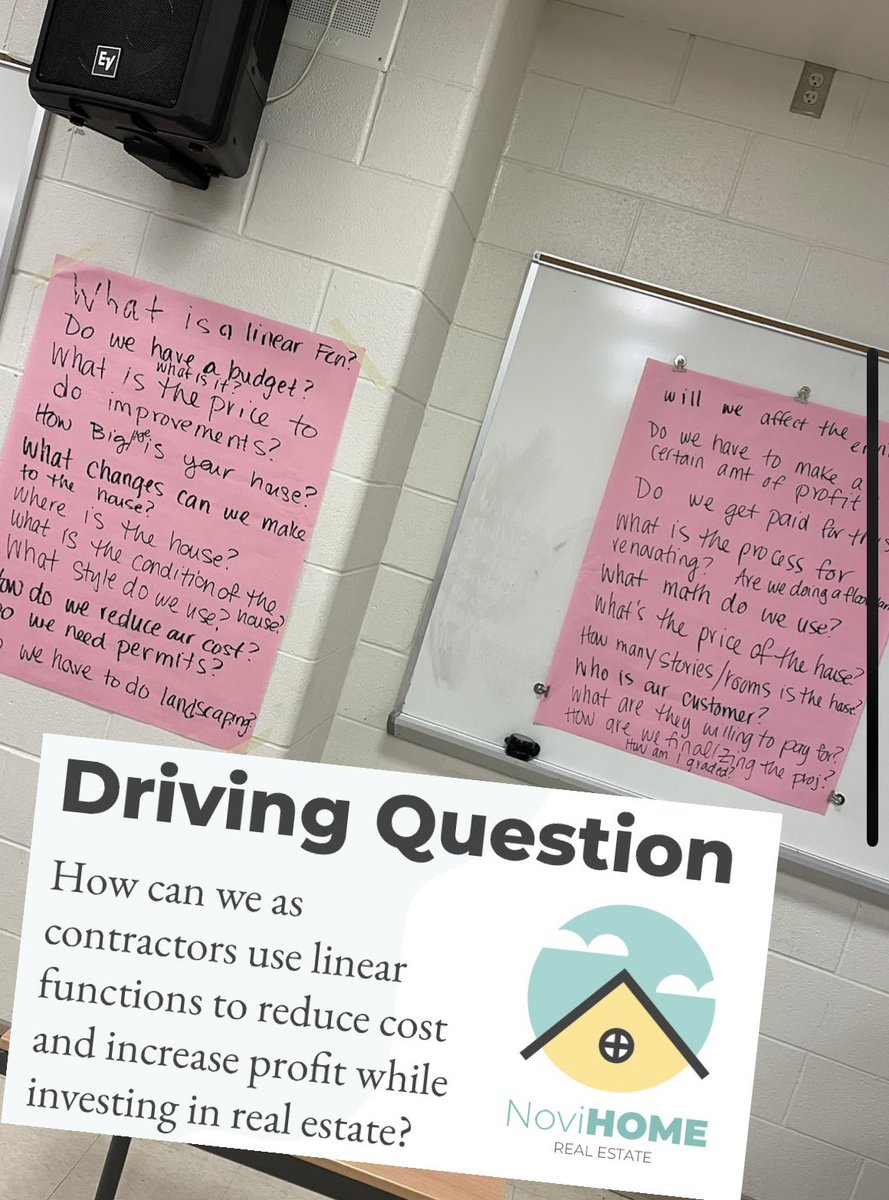 EV
What is a linear Fcn?
Do we have a budget?
what is it?
What is the price to
do improvements?
How Big is your house?
what changes can we make
to the house?
Where is the house?
what is the condition of the
house?
What style do we use?
How do we reduce our cost?
Do we need permits?
we have to do landscaping?
will we affect the
Do we have to make a
certain amt of profit
Do we get paid for this
What is the process for
renovating? Are we doing a
What math do we use?
What's the price of the house?
How many stories/rooms is the house?
who is our customer?
what are they willing to pay for?
How are we finalizing the proj?
How am i graded?
Driving Question
How can we as
contractors use linear
functions to reduce cost
and increase profit while
investing in real estate?
NoviHOME
REAL ESTATE